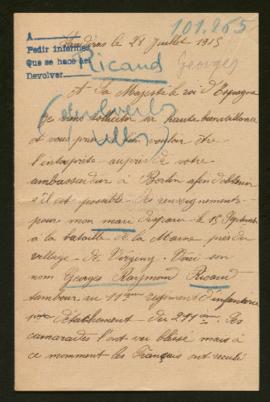 101.265
A
Pedir informes
Que se hace así
Devolver
le 21 Juillet 1915
Ricaud
Georges
A la Majesté le roi d'Espagne
Je viens solliciter sa haute bienveillance
et vous prier de bien vouloir être
l'interprète auprès de votre
ambassadeur à Berlin afin d'obtenir
s'il est possible des renseignements
pour mon mari disparu le 15 Septembre
à la bataille de la Marne près du
village de Virginy. Voici son
nom Georges Raymond Ricaud
tambour au 11ème régiment d'infanterie
détachement du 211ème. Ses
camarades l'ont vu blessé mais à
ce momment les Français ont reculé